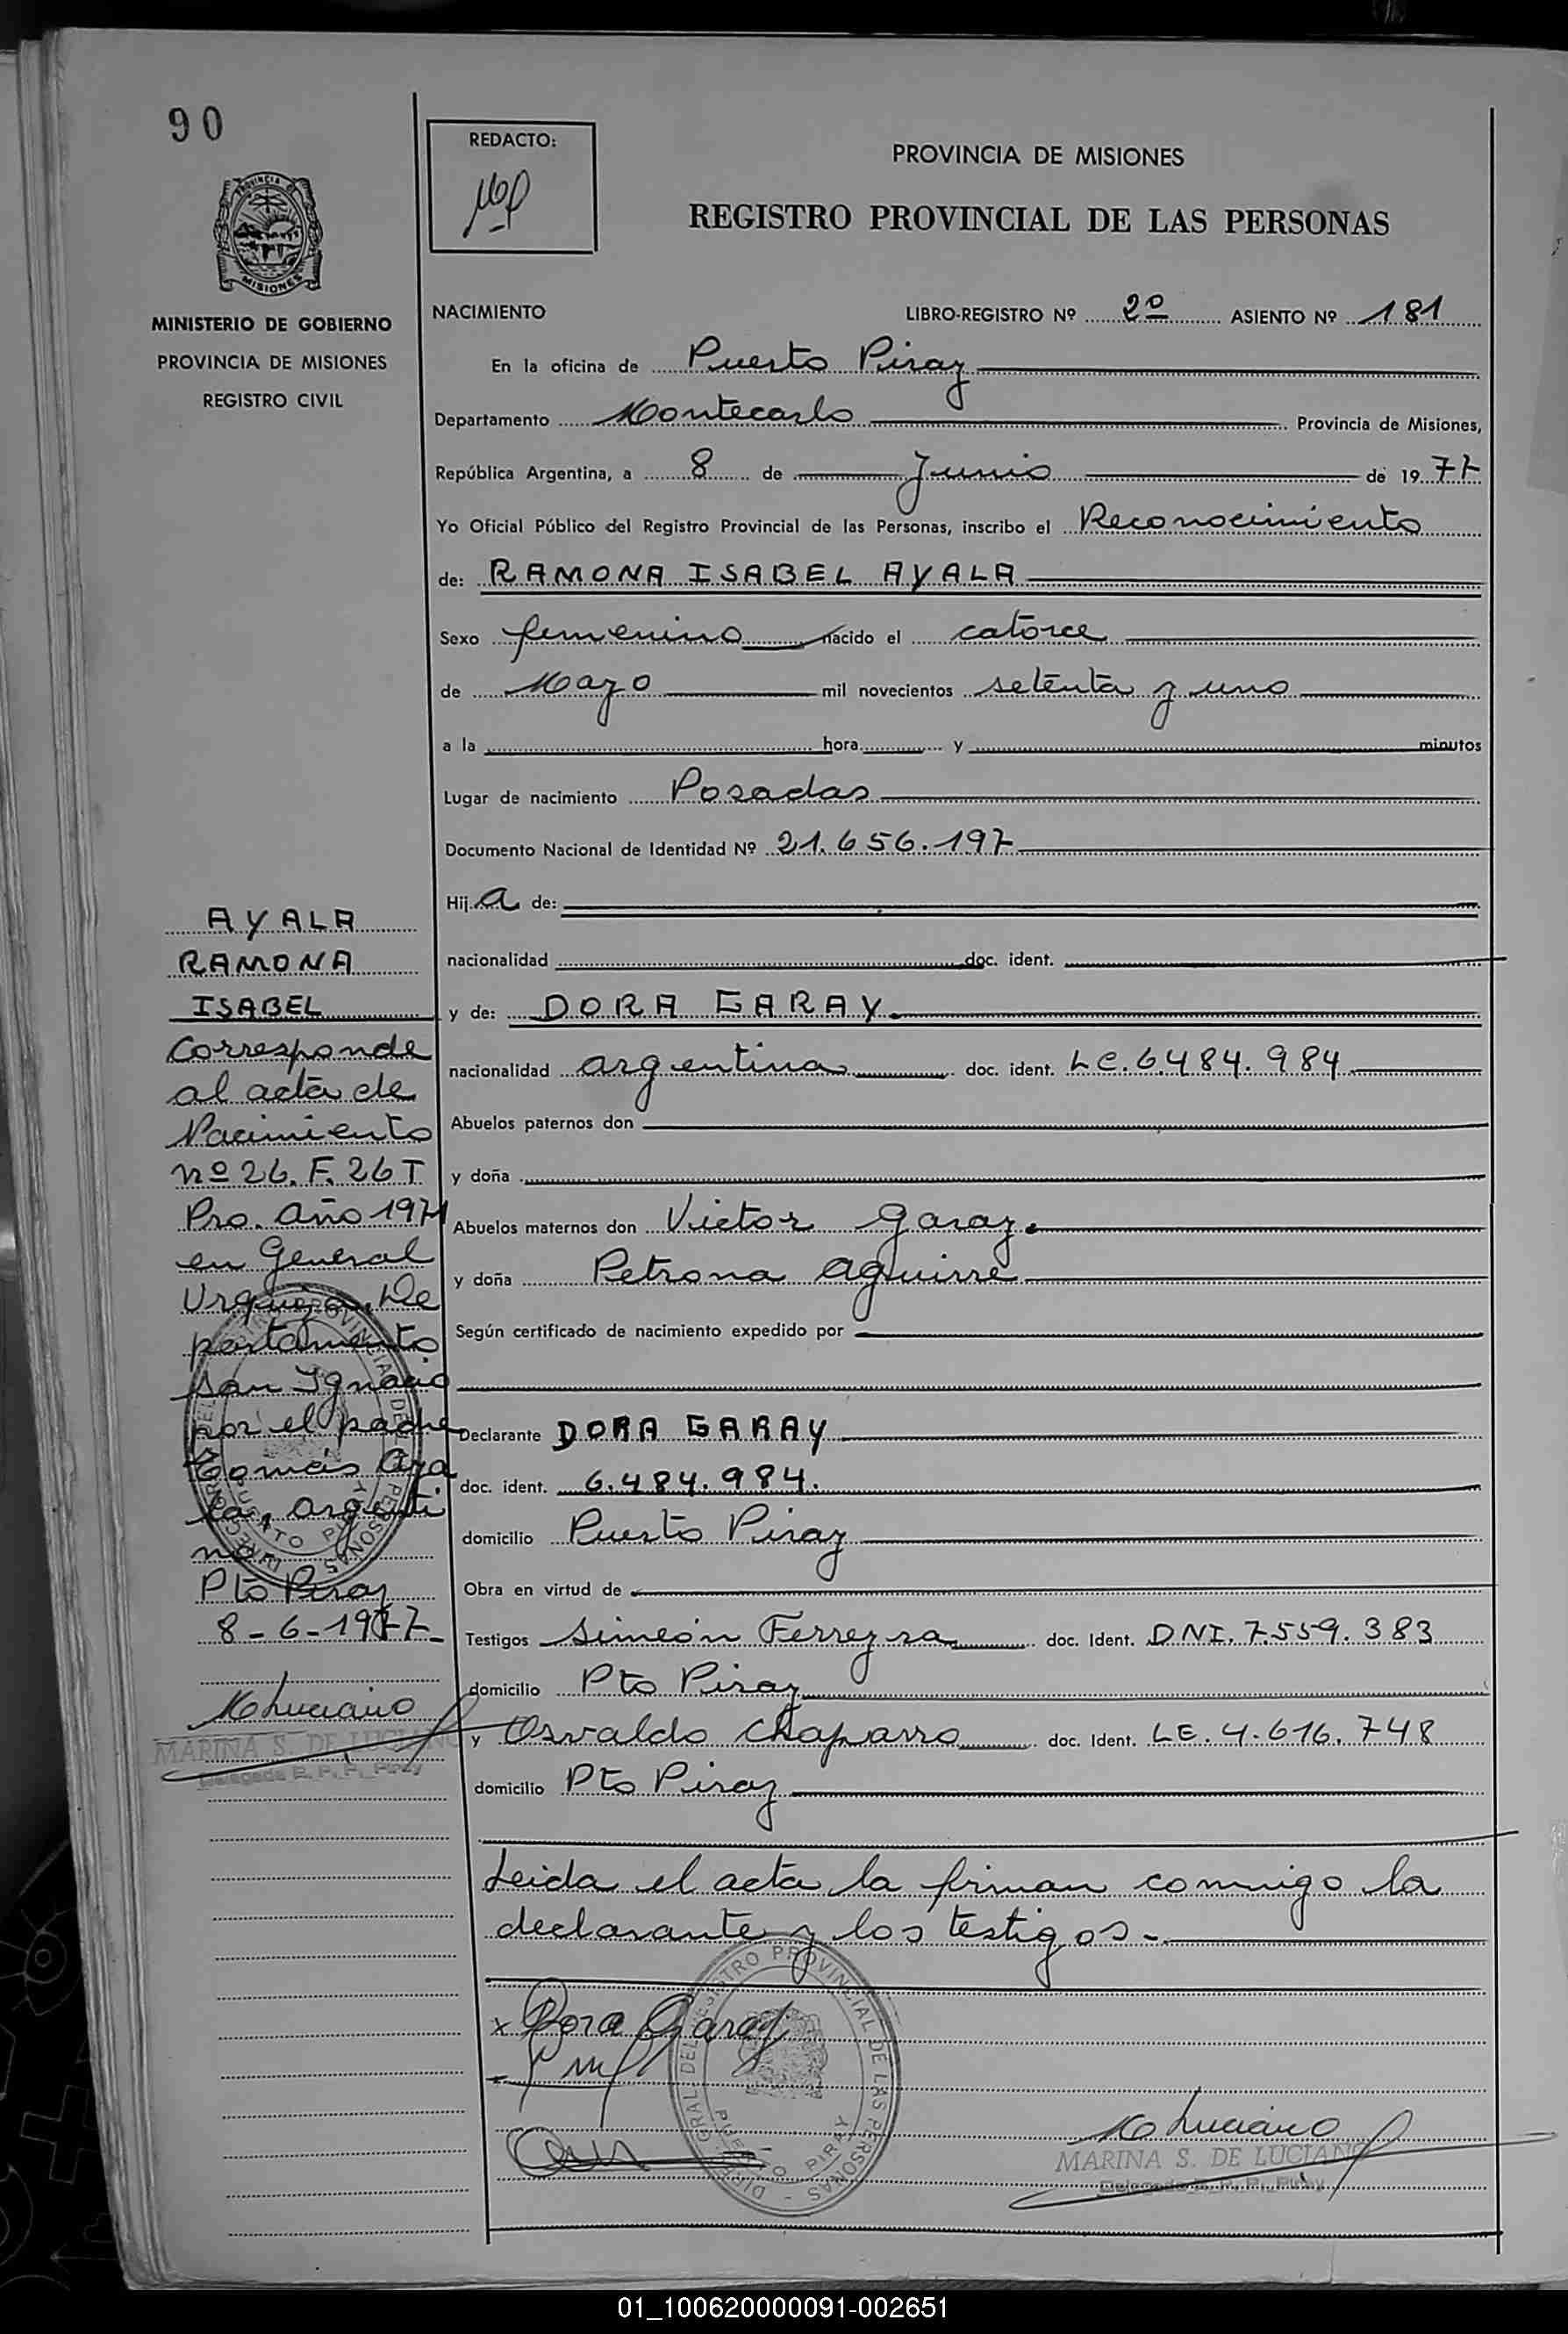 90
REDACTO:
PROVINCIA DE MISIONES
REGISTRO PROVINCIAL DE LAS PERSONAS
MISIONES
MINISTERIO DE GOBIERNO
PROVINCIA DE MISIONES
REGISTRO CIVIL
NACIMIENTO LIBRO-REGISTRO Nº 2º ASIENTO Nº 181
En la oficina de Puerto Piray
Departamento Montecarlo Provincia de Misiones,
República Argentina, a 8 de Junio de 1977
Yo Oficial Público del Registro Provincial de las Personas, inscribo el Reconocimiento
de: RAMONA ISABEL AYALA
Sexo femenino nacido el catorce
de Mayo mil novecientos setenta y uno
a la hora y minutos
Lugar de nacimiento Posadas
Documento Nacional de Identidad Nº 21.656.197
Hija de:
nacionalidad doc. ident.
y de: DORA GARAY
nacionalidad argentina doc. ident. LC.6.484.984
Abuelos paternos don
y doña
Abuelos maternos don Victor Garay
y doña Petrona Aguirre
Según certificado de nacimiento expedido por
Declarante DORA GARAY
doc. ident. 6.484.984.
domicilio Puerto Piray
Obra en virtud de
Testigos Simeón Ferreyra doc. Ident. DNI. 7.559.383
domicilio Pto Piray
y Osvaldo Chaparro doc. Ident. LE. 4.616.748
domicilio Pto Piray
Leida el acta la firman conmigo la
declarante y los testigos.-
x Dora Garay
M Luciano
MARINA S. DE LUCIANO
Delegada R. P. P. Piray
DIREC. GRAL. DEL REGISTRO PROVINCIAL DE LAS PERSONAS - PUERTO PIRAY
AYALA
RAMONA
ISABEL
Corresponde
al acta de
Nacimiento
nº 26. F. 26 T
Pro. Año 1971
en General
Urquiza, De
partamento
San Ignacio
por el padre
Tomás Aya
la, argenti
no
Pto Piray
8-6-1977
M Luciano
MARINA S. DE LUCIANO
Delegada R. P. P. Piray
01_100620000091-002651